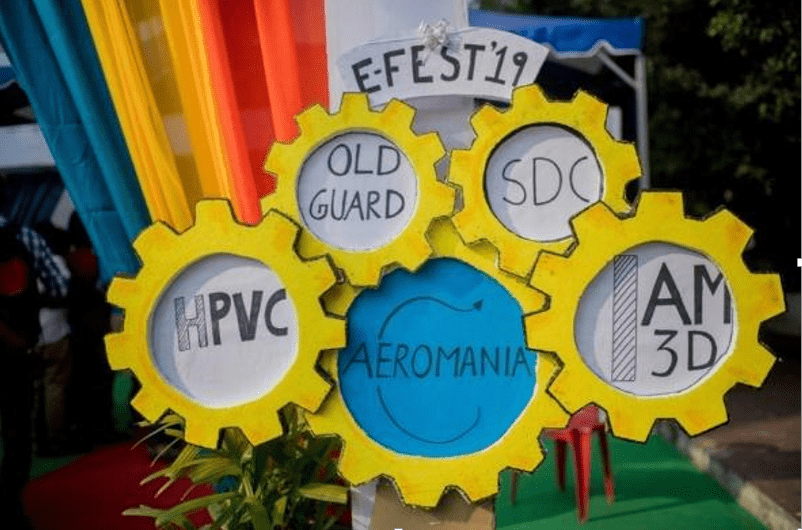 E-FEST'19
OLD
GUARD
SDC
HPVC
AEROMANIA
I AM
3D